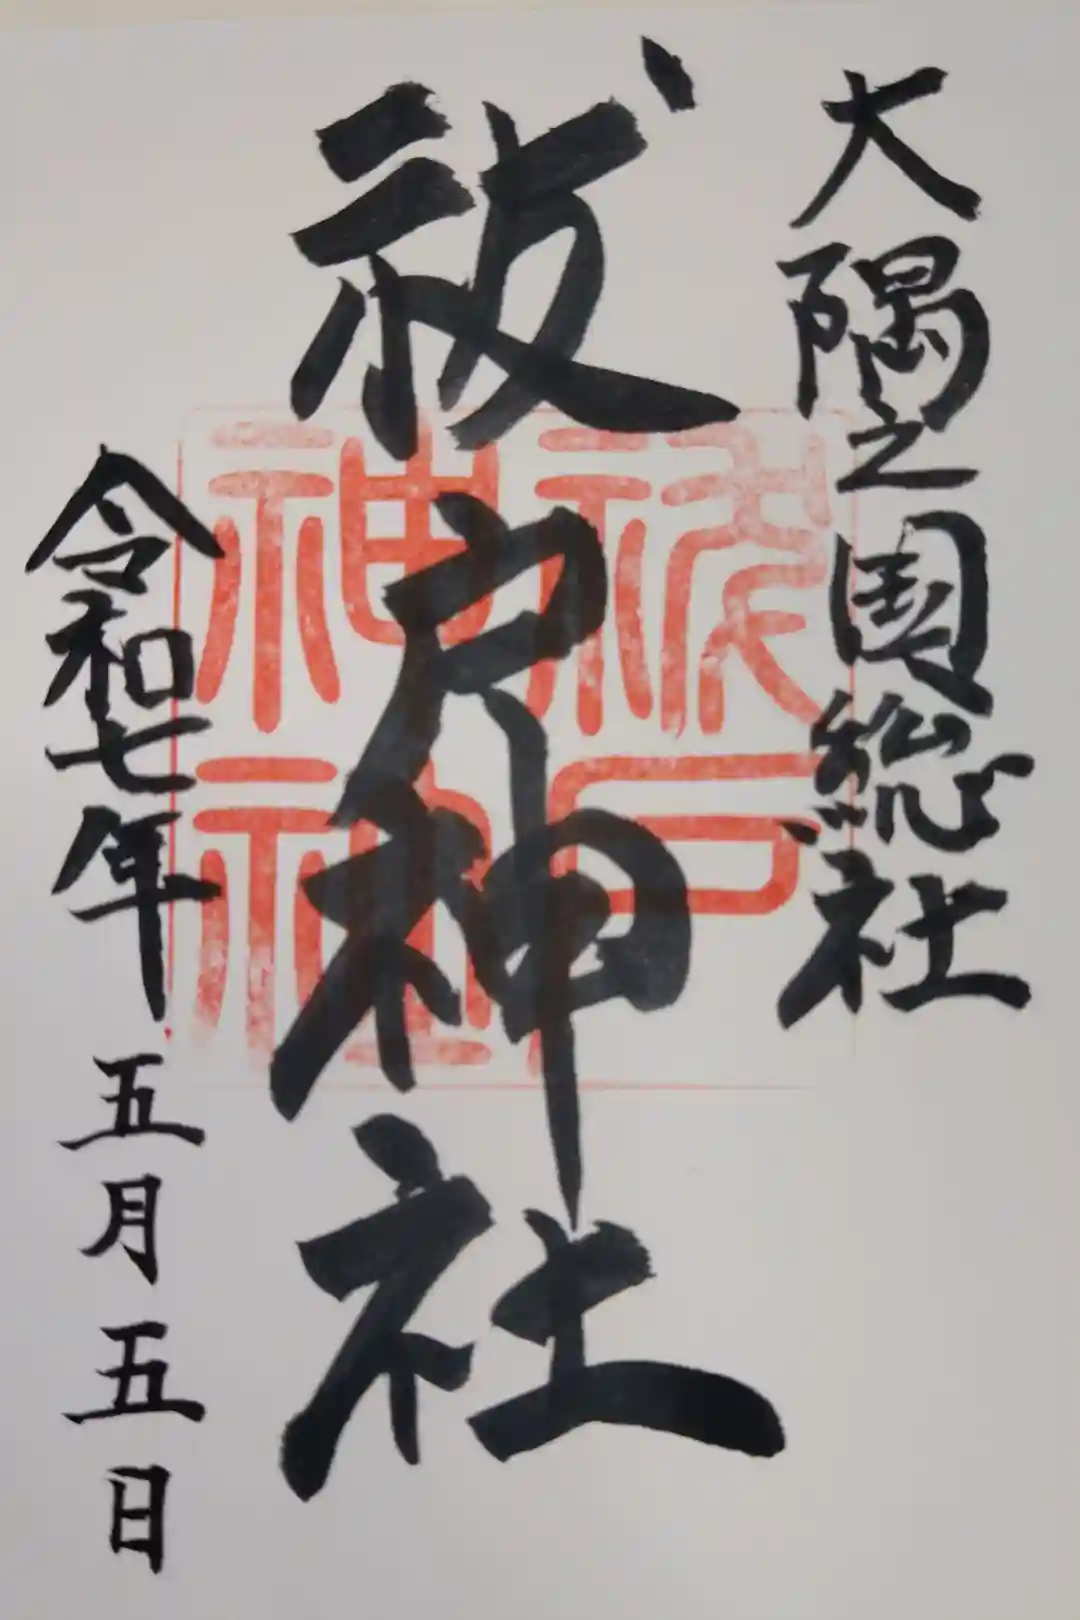 大隅之國総社
祓戸神社
祓戸
神社
令和七年 五月五日